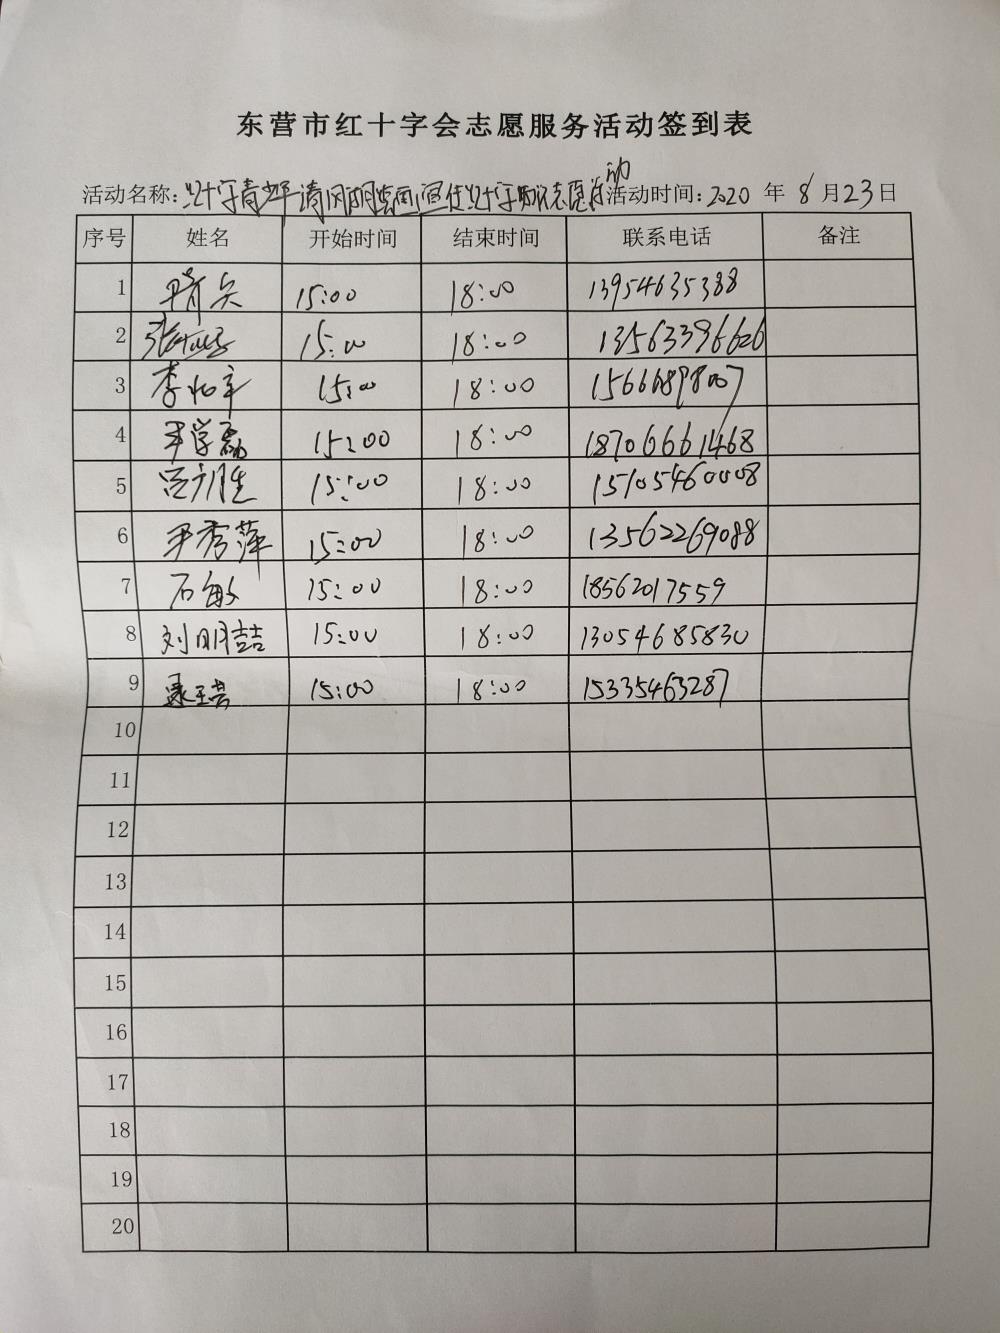 东营市红十字会志愿服务活动签到表
活动名称:红十字青少年清风湖绘画宣传红十字知识志愿活动 活动时间:2020 年 8 月 23 日
序号 姓名 开始时间 结束时间 联系电话 备注
1 15:00 18:00 13954635388
2 15:00 18:00 13563396626
3 15:00 18:00 15666898007
4 尹学磊 15:00 18:00 18706661468
5 15:00 18:00 15105460008
6 尹秀萍 15:00 18:00 13562269088
7 石敏 15:00 18:00 18562017559
8 刘明喆 15:00 18:00 13054685830
9 15:00 18:00 15335463287
10
11
12
13
14
15
16
17
18
19
20